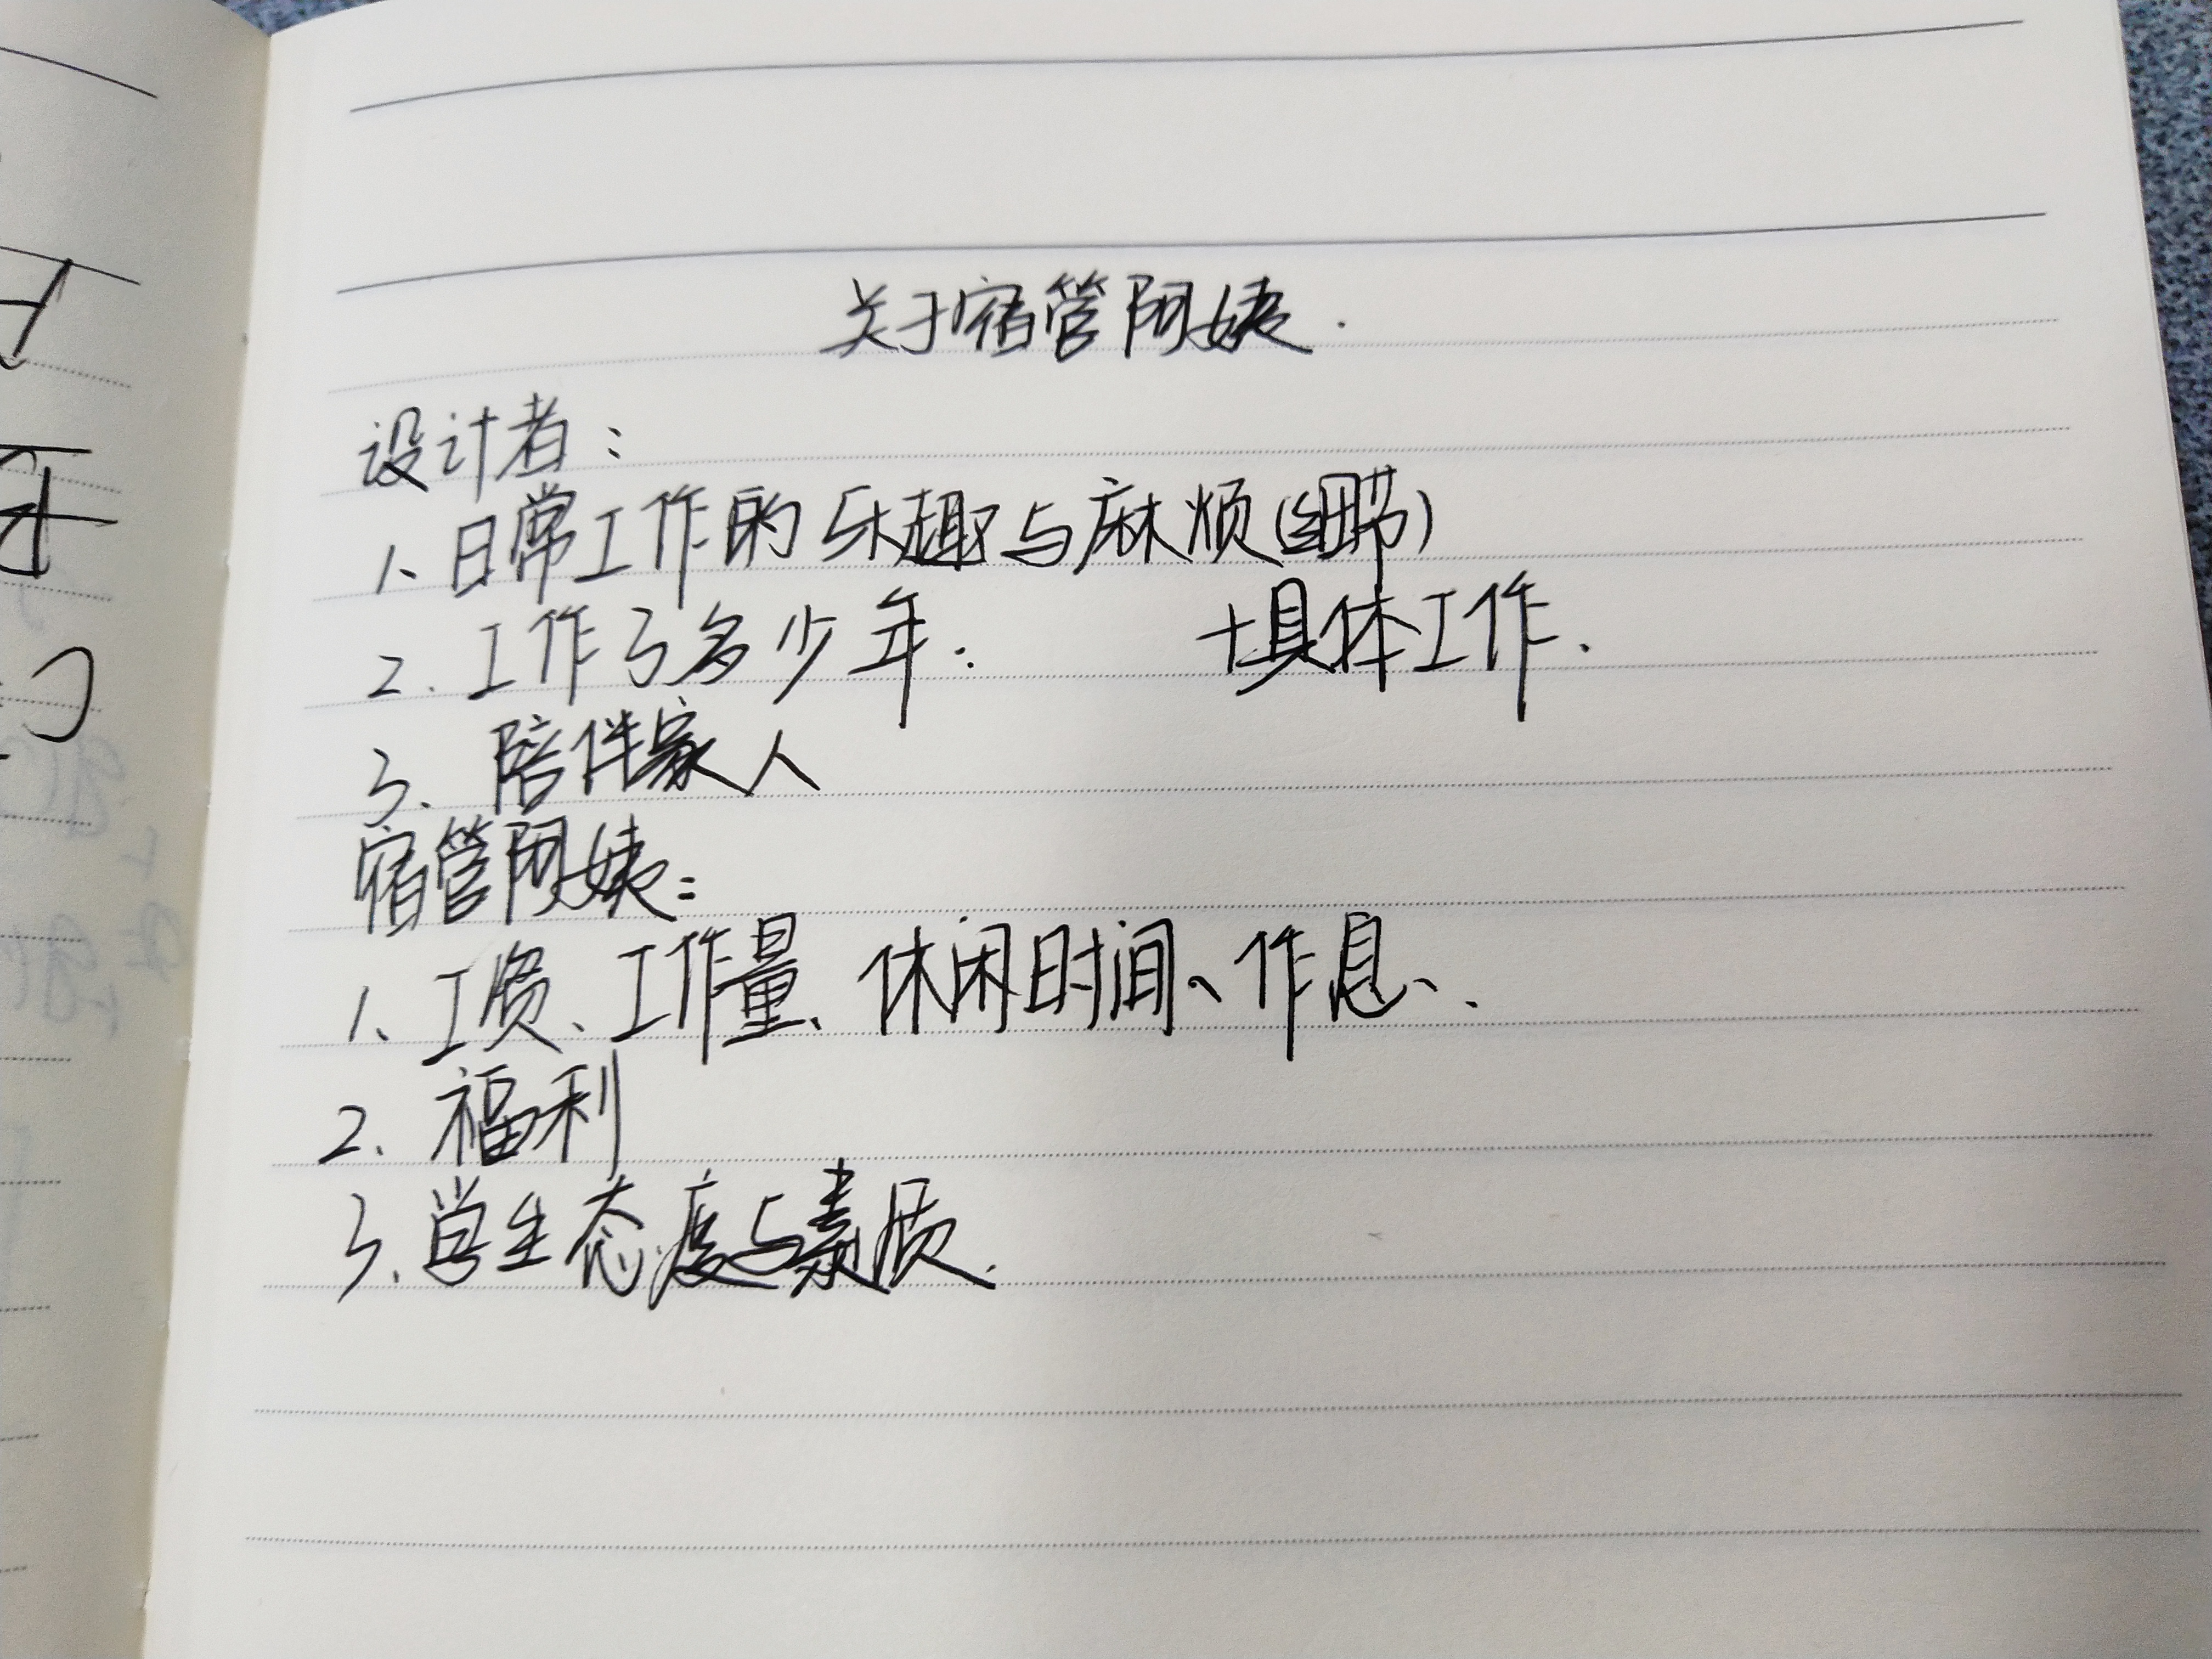 关于宿管阿姨.
设计者:
1、日常工作的乐趣与麻烦(细节)
2.工作了多少年. +具体工作.
3.陪伴家人
宿管阿姨:
1、工资、工作量、休闲时间、作息、.
2.福利
3.学生态度与素质.